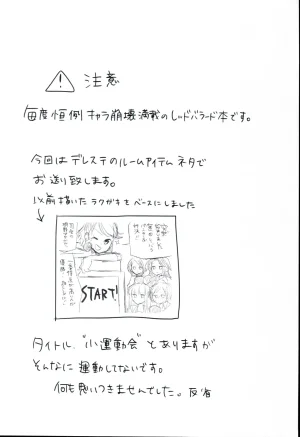 注意
毎度恒例キャラ崩壊満載のレッドバラード本です。
今回はデレステのルームアイテムネタで
お送り致します。
以前描いたラクガキをベースにしました
START!
タイトル"小運動会"とありますが
そんなに運動してないです。
何も思いつきませんでした。反省